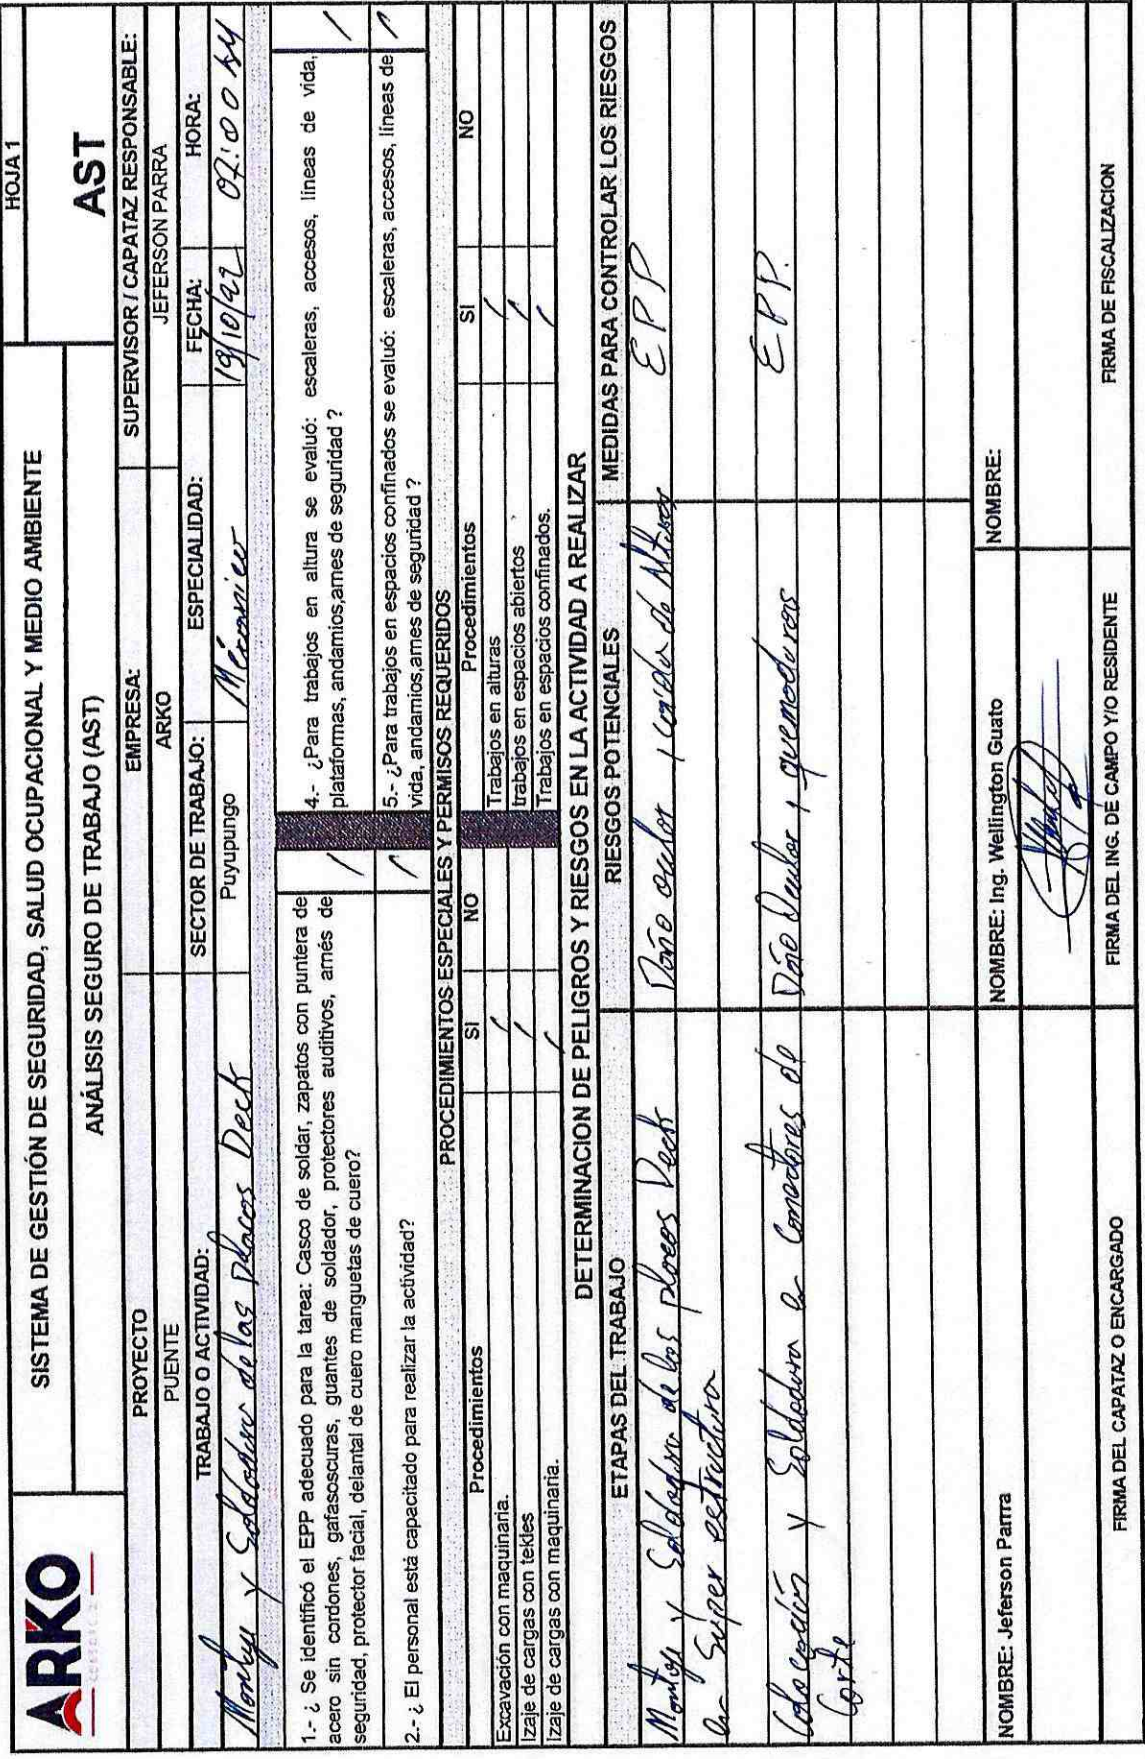 ARKO
SISTEMA DE GESTIÓN DE SEGURIDAD, SALUD OCUPACIONAL Y MEDIO AMBIENTE
HOJA 1
ANÁLISIS SEGURO DE TRABAJO (AST)
AST
PROYECTO
EMPRESA:
SUPERVISOR / CAPATAZ RESPONSABLE:
PUENTE
ARKO
JEFERSON PARRA
TRABAJO O ACTIVIDAD:
SECTOR DE TRABAJO:
ESPECIALIDAD:
FECHA:
HORA:
Montaje y Soldadura de las placas Deck
Puyupungo
Mecanico
19/10/22
07:00 AM
1.- ¿ Se identificó el EPP adecuado para la tarea: Casco de soldar, zapatos con puntera de
acero sin cordones, gafasoscures, guantes de soldador, protectores auditivos, arnés de
seguridad, protector facial, delantal de cuero manguetas de cuero?
/
4.- ¿Para trabajos en altura se evaluó: escaleras, accesos, líneas de vida,
plataformas, andamios,arnes de seguridad ?
/
2.- ¿ El personal está capacitado para realizar la actividad?
/
5.- ¿Para trabajos en espacios confinados se evaluó: escaleras, accesos, líneas de
vida, andamios,arnes de seguridad ?
/
PROCEDIMIENTOS ESPECIALES Y PERMISOS REQUERIDOS
Procedimientos
SI
NO
Procedimientos
SI
NO
Excavación con maquinaria.
/
Trabajos en alturas
/
Izaje de cargas con tekles
/
trabajos en espacios abiertos
/
Izaje de cargas con maquinaria.
/
Trabajos en espacios confinados.
/
DETERMINACION DE PELIGROS Y RIESGOS EN LA ACTIVIDAD A REALIZAR
ETAPAS DEL TRABAJO
RIESGOS POTENCIALES
MEDIDAS PARA CONTROLAR LOS RIESGOS
Montaje y Soldadura de las placas Deck
Daño ocular, caídas de Alturas
EPP
la Super estructura
Colocación y Soldadura la Conectores de
Daño Ocular, quemaduras
EPP.
Corte
NOMBRE: Jeferson Parrra
NOMBRE: Ing. Wellington Guato
NOMBRE:
FIRMA DEL CAPATAZ O ENCARGADO
FIRMA DEL ING. DE CAMPO Y/O RESIDENTE
FIRMA DE FISCALIZACION